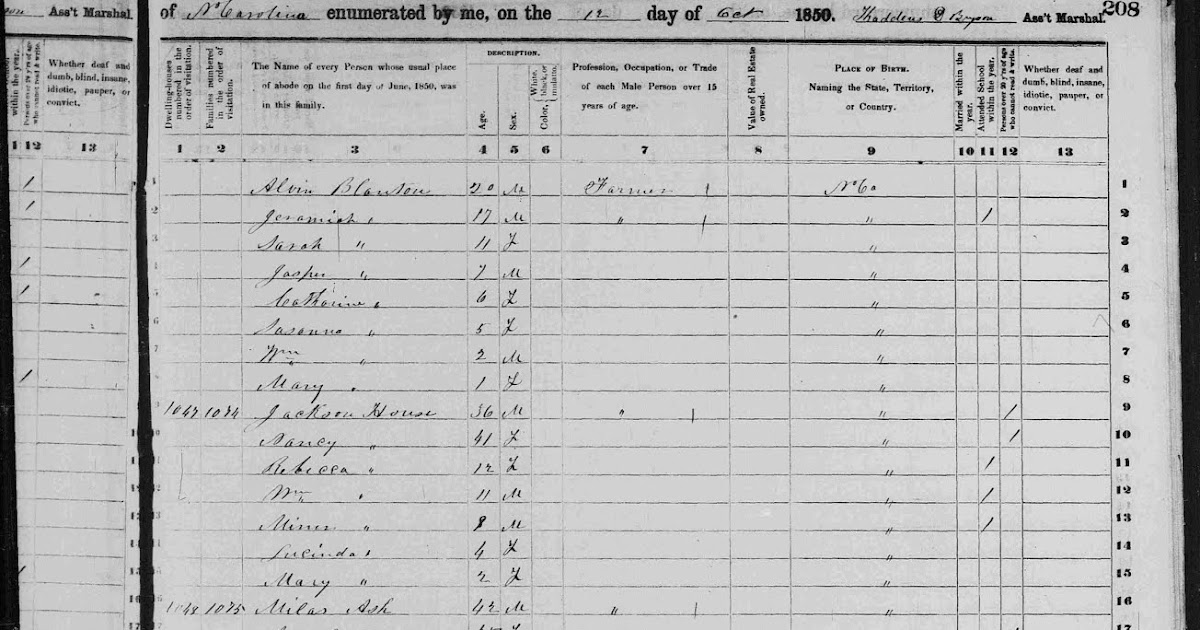 Ass't Marshal. of N. Carolina enumerated by me, on the 12 day of Oct 1850. Thaddeus D Bryson Ass't Marshal. 208
within the year.
Persons over 20 y'rs of age who cannot read & write.
Whether deaf and dumb, blind, insane, idiotic, pauper, or convict.
Dwelling-houses numbered in the order of visitation.
Families numbered in the order of visitation.
The Name of every Person whose usual place of abode on the first day of June, 1850, was in this family.
DESCRIPTION.
Age.
Sex.
Color, White, black, or mulatto.
Profession, Occupation, or Trade of each Male Person over 15 years of age.
Value of Real Estate owned.
PLACE OF BIRTH. Naming the State, Territory, or Country.
Married within the year.
Attended School within the year.
Persons over 20 y'rs of age who cannot read & write.
Whether deaf and dumb, blind, insane, idiotic, pauper, or convict.
12 13 1 2 3 4 5 6 7 8 9 10 11 12 13
1 Alvin Blanton 20 M Farmer / No Ca 1
2 Jeramiah " 17 M " / " / 2
3 Sarah " 11 F " 3
4 Jasper " 7 M " 4
5 Catharine " 6 F " 5
6 Sasanna " 5 F " 6
7 Wm " 2 M " 7
8 Mary " 1 F " 8
9 1047 1074 Jackson House 36 M " / " / 9
10 Nancy " 41 F " / 10
11 Rebecca " 12 F " / 11
12 Wm " 11 M " / 12
13 Miner " 8 M " / 13
14 Lucinda " 4 F " 14
15 Mary " 2 F " 15
16 1048 1075 Milas Ash 42 M " / " 16
17